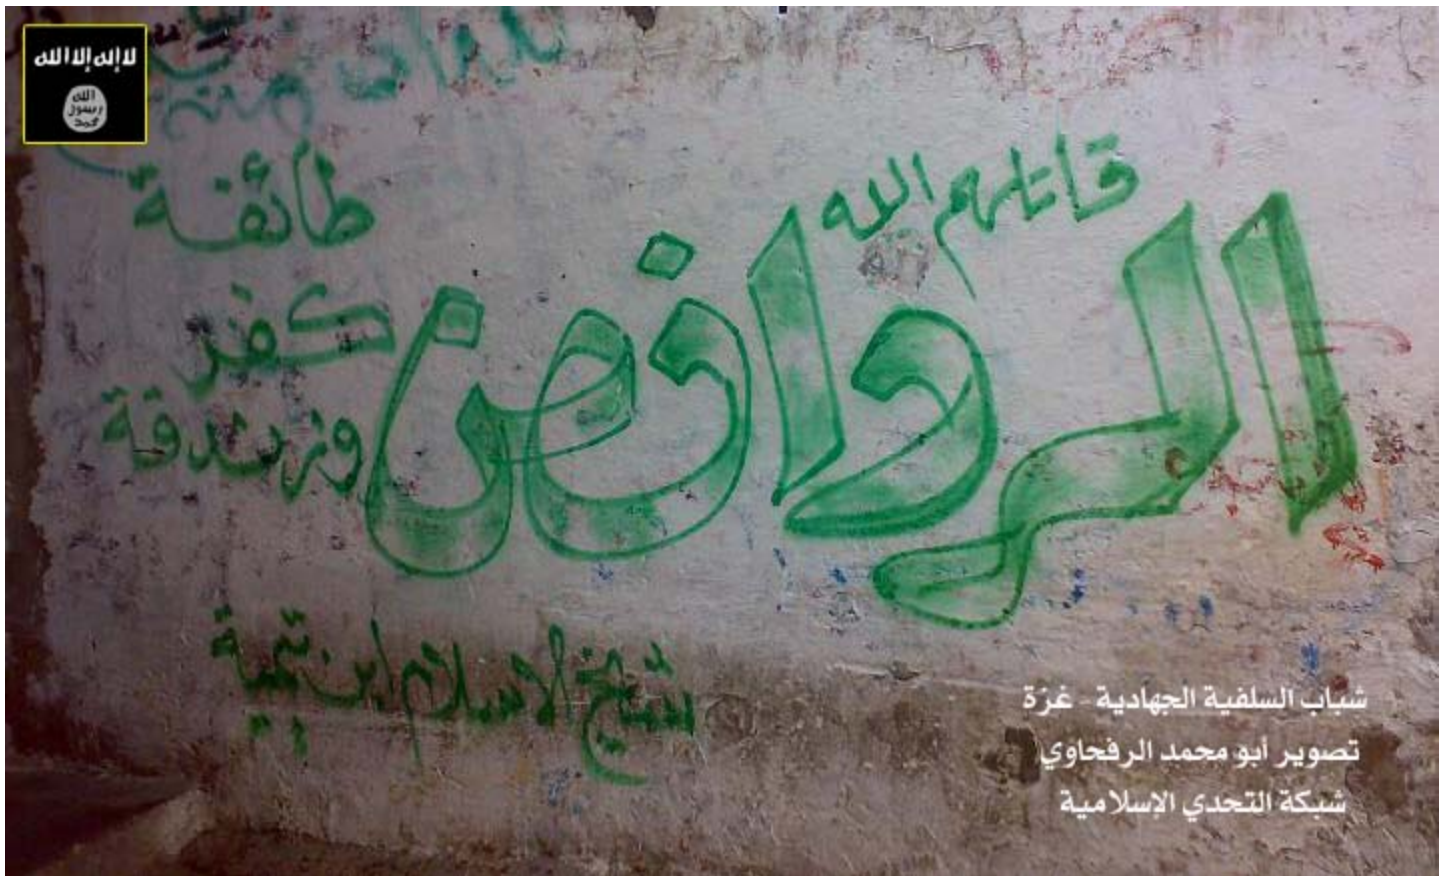 لا إله إلا الله
الله
رسول
محمد
قاتلهم الله
الروافض
طائفة
كفر
وزندقة
شيخ الاسلام ابن تيمية
شباب السلفية الجهادية - غزة
تصوير أبو محمد الرفحاوي
شبكة التحدي الإسلامية